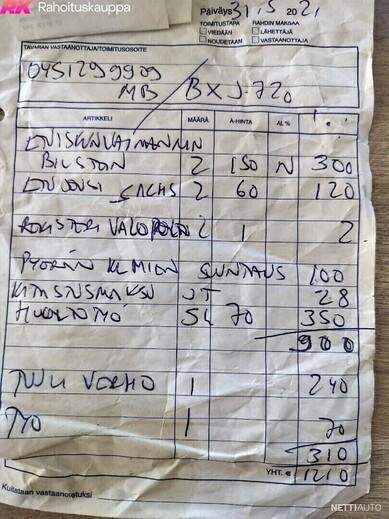 RK Rahoituskauppa
Päiväys 31.5 2021
TOIMITUSTAPA RAHDIN MAKSAA
VIEDÄÄN LÄHETTÄJÄ
NOUDETAAN VASTAANOTTAJA
TAVARAN VASTAANOTTAJA/TOIMITUSOSOITE
0451299909
MB / BXJ-720
ARTIKKELI MÄÄRÄ À-HINTA AL% €
ETUISKUNVAIMANNIN
BILSTEIN 2 150 N 300
ETUJOUSI SACHS 2 60 120
ROKISTERI VALO POLTI 2 1 2
PYÖRÄN KULMIEN SUUNTAUS 100
KATSASTUSMAKSU 28
HUOLTOTYÖ 5h 70 350
900
TUULI VERHO 1 240
TYÖ 1 70
310
YHT. € 1210
Kuitataan vastaanotetuksi
NETTIAUTO